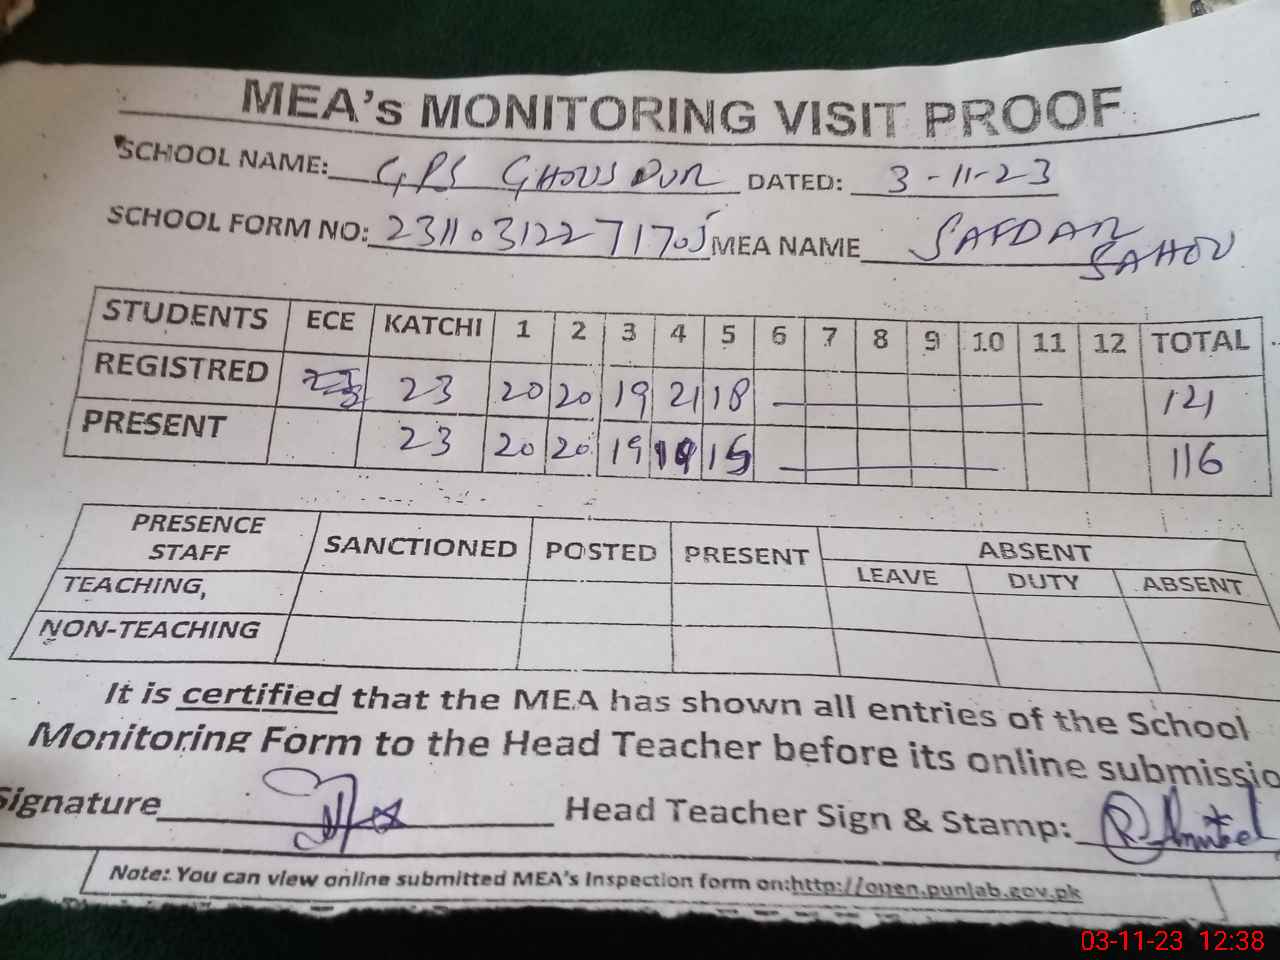 MEA's MONITORING VISIT PROOF
SCHOOL NAME: GPS GHOUS PUR DATED: 3-11-23
SCHOOL FORM NO: 23110312271705 MEA NAME SAFDAR SAHOU
STUDENTS ECE KATCHI 1 2 3 4 5 6 7 8 9 10 11 12 TOTAL
REGISTRED 23 20 20 19 21 18 121
PRESENT 23 20 20 19 19 15 116
PRESENCE STAFF SANCTIONED POSTED PRESENT ABSENT
LEAVE DUTY ABSENT
TEACHING,
NON-TEACHING
It is certified that the MEA has shown all entries of the School
Monitoring Form to the Head Teacher before its online submissio
Signature Head Teacher Sign & Stamp:
Note: You can view online submitted MEA's Inspection form on:http://open.punjab.gov.pk
03-11-23 12:38